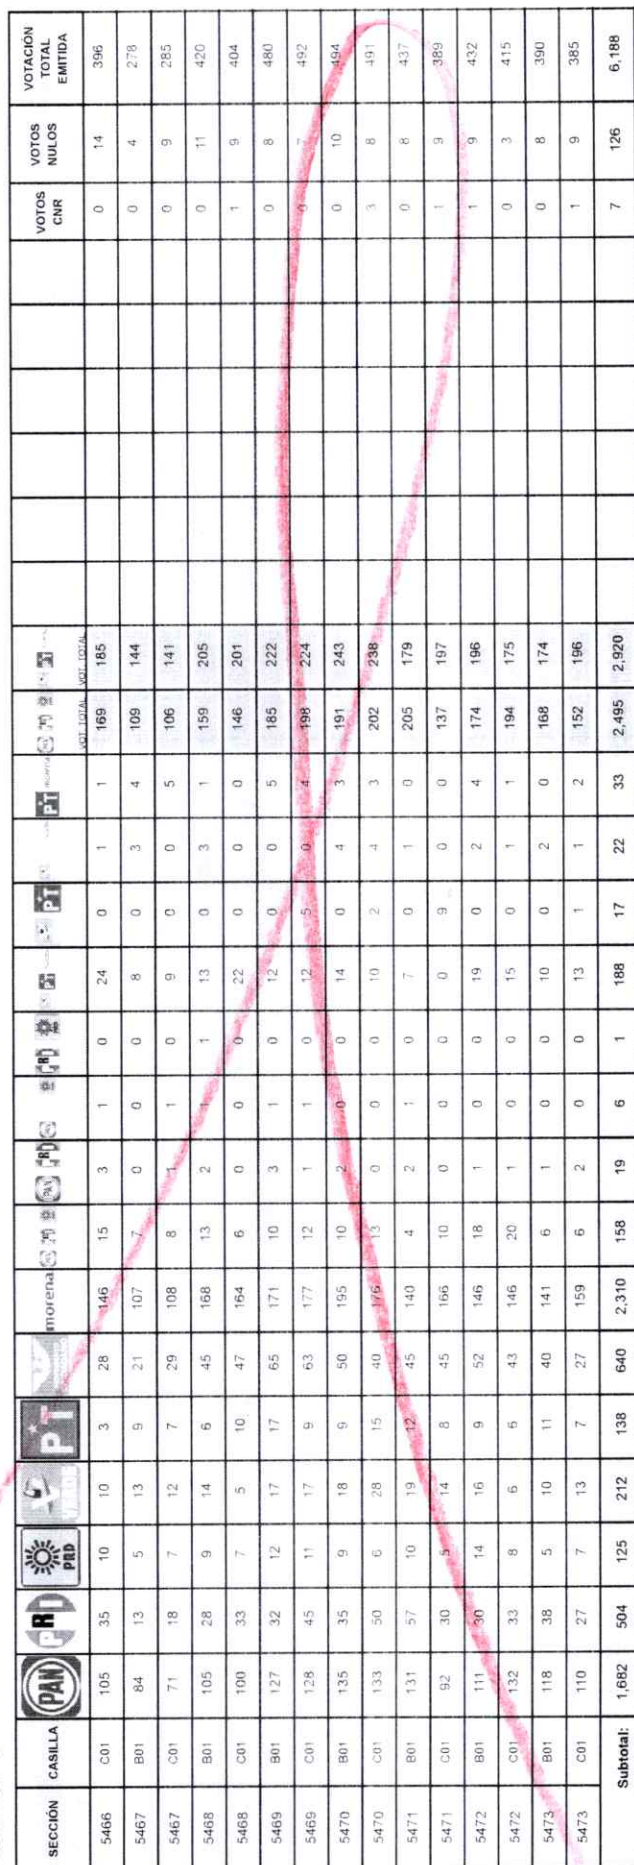 SECCIÓN CASILLA PAN PRD PRD VERDE PT morena PAN PRD PT PT PT VOT TOTAL VOT TOTAL VOTOS CNR VOTOS NULOS VOTACIÓN TOTAL EMITIDA
5466 C01 105 35 10 10 3 28 146 15 3 1 0 24 0 1 1 169 185 0 14 396
5467 B01 84 13 5 13 9 21 107 7 0 0 0 8 0 3 4 109 144 0 4 278
5467 C01 71 18 7 12 7 29 108 8 1 1 0 9 0 0 5 106 141 0 9 285
5468 B01 105 28 9 14 6 45 168 13 2 1 1 13 0 3 1 159 205 0 11 420
5468 C01 100 33 7 5 10 47 164 6 0 0 0 22 0 0 0 146 201 1 9 404
5469 B01 127 32 12 17 17 65 171 10 3 1 0 12 0 0 5 185 222 0 8 480
5469 C01 128 45 11 17 9 63 177 12 1 1 0 12 5 0 4 198 224 0 7 492
5470 B01 135 35 9 18 9 50 195 10 2 0 0 14 0 4 3 191 243 0 10 494
5470 C01 133 50 6 28 15 40 176 13 0 0 0 10 2 4 3 202 238 3 8 491
5471 B01 131 57 10 19 12 45 140 4 2 1 0 7 0 1 0 205 179 0 8 437
5471 C01 92 30 5 14 8 45 166 10 0 0 0 0 9 0 0 137 197 1 9 389
5472 B01 111 30 14 16 9 52 146 18 1 0 0 19 0 2 4 174 196 1 9 432
5472 C01 132 33 8 6 6 43 146 20 1 0 0 15 0 1 1 194 175 0 3 415
5473 B01 118 38 5 10 11 40 141 6 1 0 0 10 0 2 0 168 174 0 8 390
5473 C01 110 27 7 13 7 27 159 6 2 0 0 13 1 1 2 152 196 1 9 385
Subtotal: 1,682 504 125 212 138 640 2,310 158 19 6 1 188 17 22 33 2,495 2,920 7 126 6,188